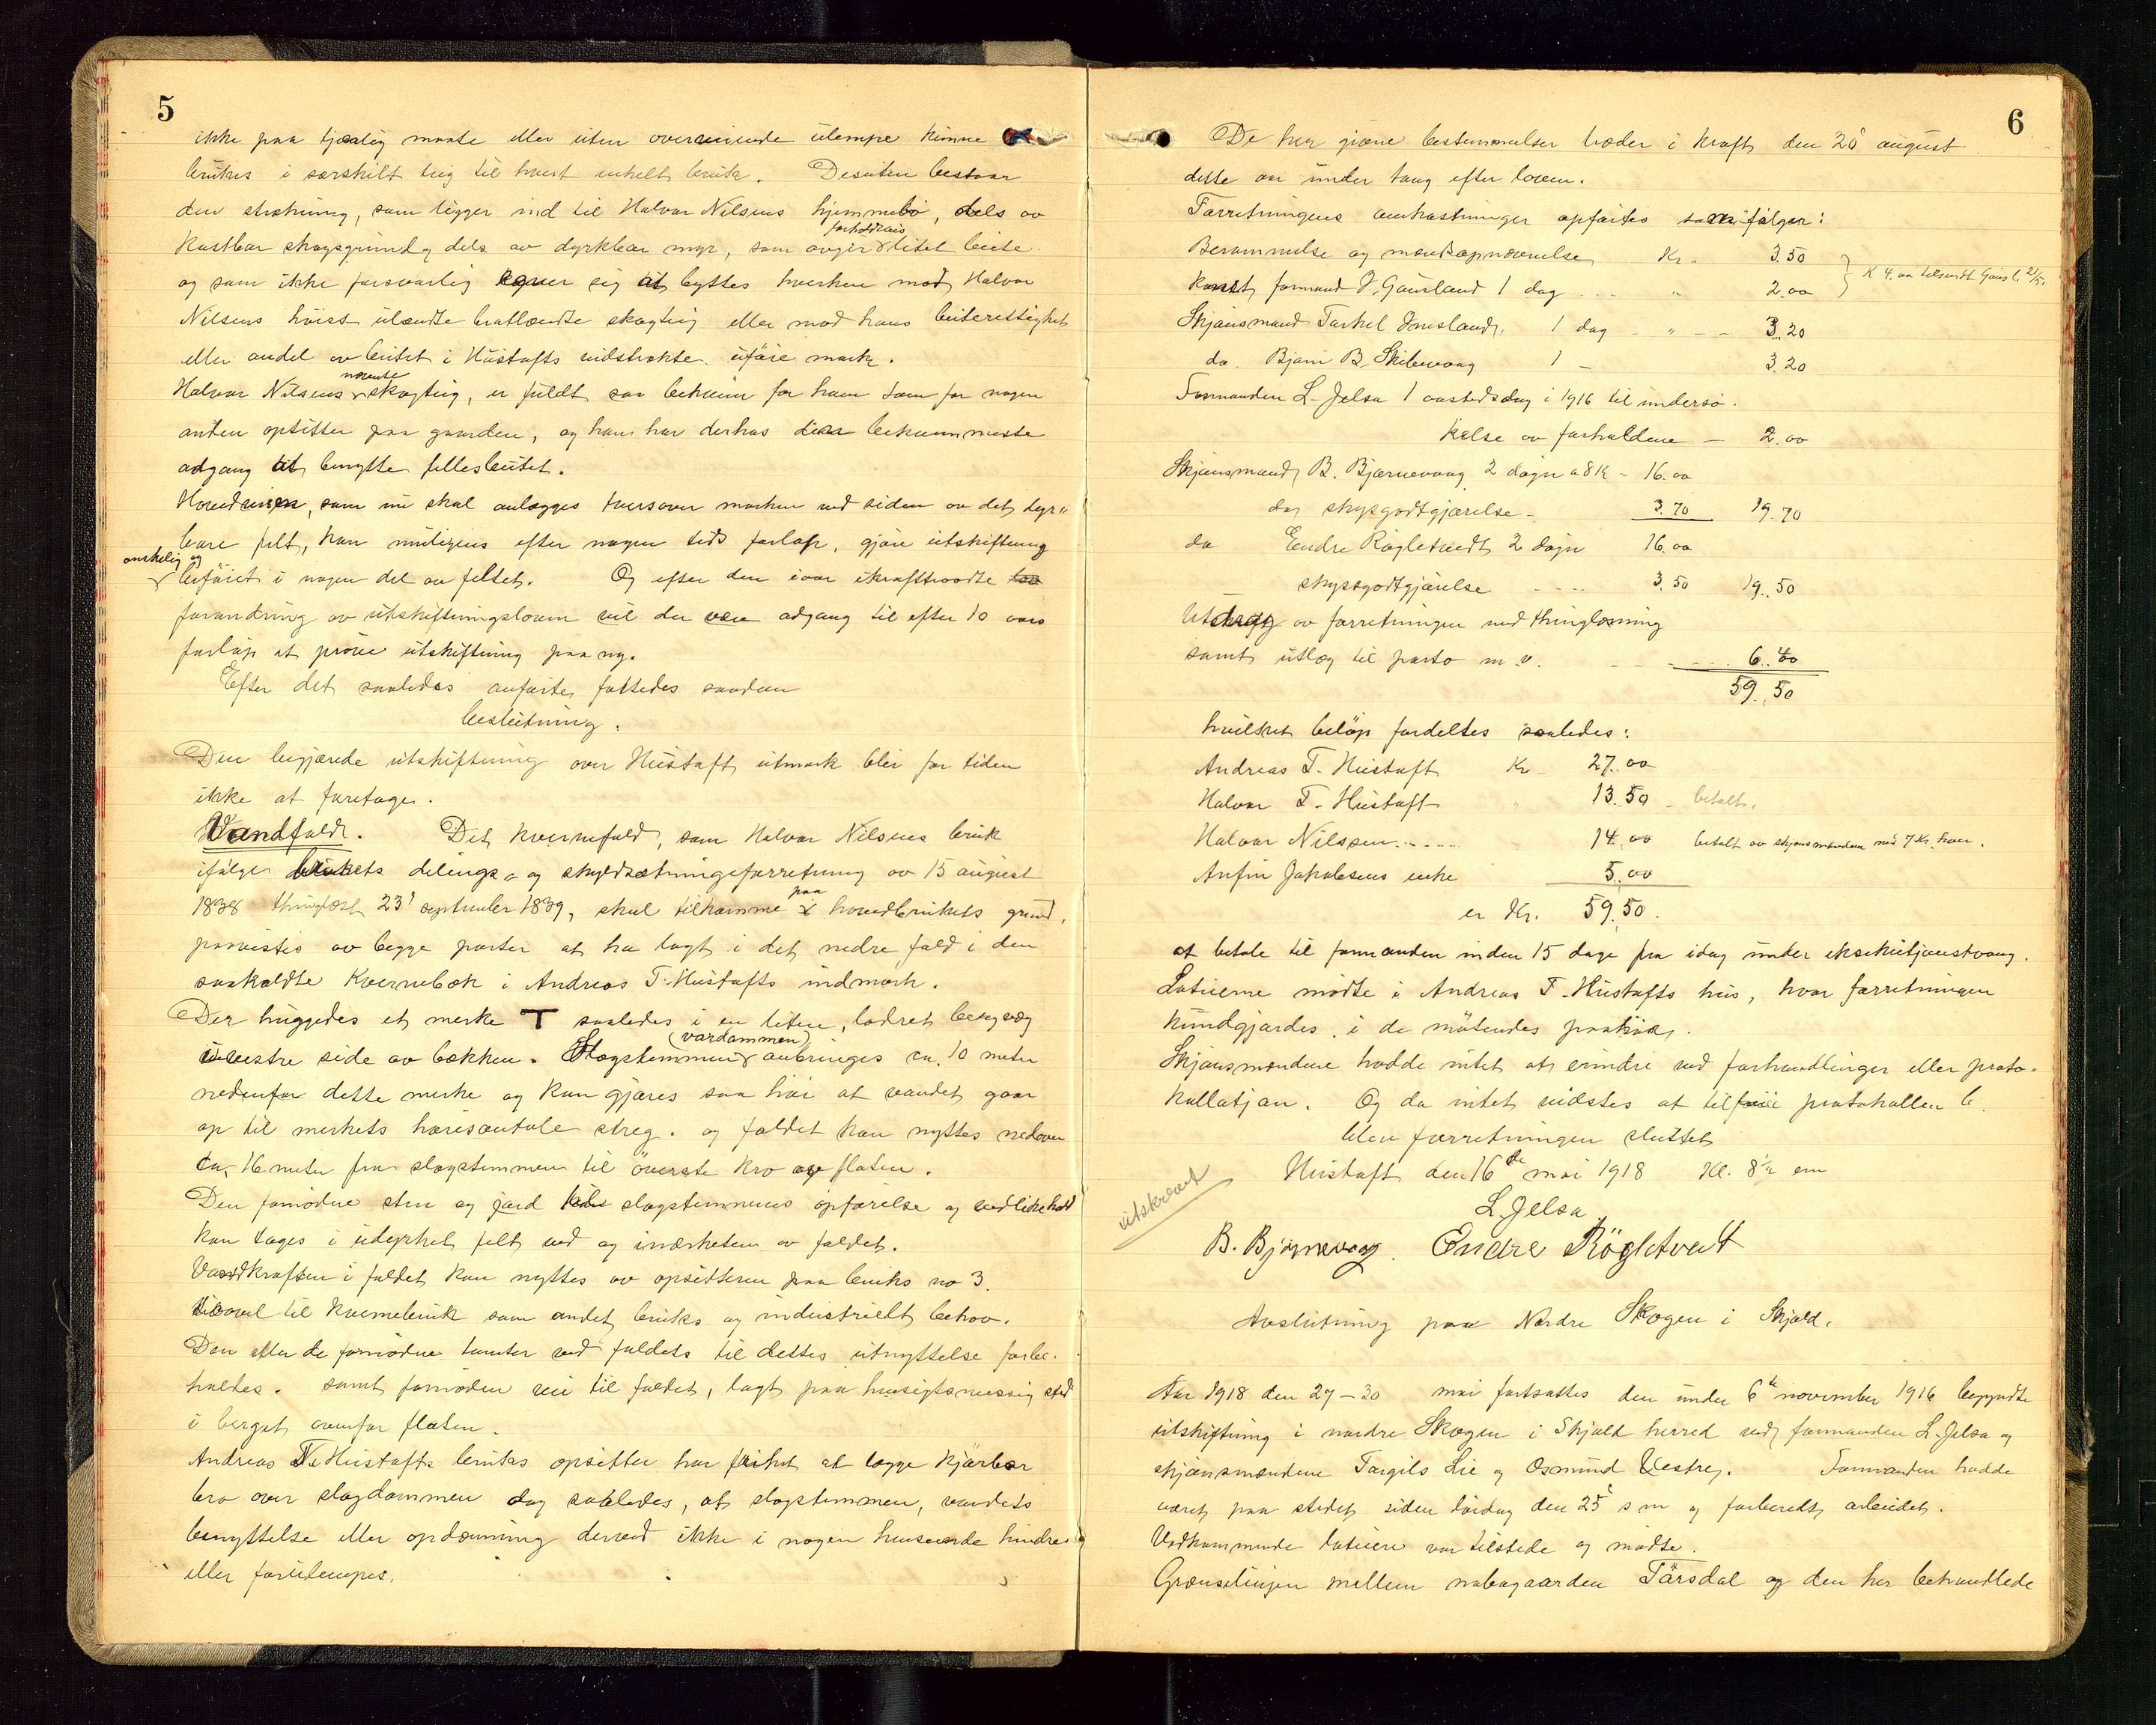 5
ikke paa tjenlig maate eller uten overveiende ulempe kunne
brukes i særskilt teig til hvert enkelt bruk. Desuten bestaar
den strekning, som ligger ind til Halvor Nilsens hjemmebö, dels av
kostbar skogsgrund og dels av dyrkbar myr, som avgir forholdsvis litet beite
og som ikke forsvarlig egner sig at byttes hverken mod Halvor
Nilsens höist ulændte bratlændte skogteig eller mod hans beiterettighet
eller andel av beitet i Hustofts vidstrakte uföre mark.
Halvor Nilsens nævnte skogteig, er fuldt saa bekvem for ham som for nogen
anden opsitter paa gaarden, og han har derhos den bekvemmeste
adgang til at benytte fellesbeitet.
Hovedveien, som nu skal anlægges tversover marken ved siden av det dyrk-
bare felt, kan muligens efter nogen tids forløp, gjöre utskiftning
ønskelig og
beföiet i nogen del av feltet. Og efter den iaar ikrafttraadte
forandring av utskiftningsloven vil der være adgang til efter 10 aars
forløp at pröve utskiftning paa ny.
Efter det saaledes anførte fattedes saadan
beslutning:
Den begjærede utskiftning over Hustoft utmark blir for tiden
ikke at foretage.
Vandfald. Det kvernefald, som Halvor Nilsens bruk
ifølge brukets delings- og skyldsætningsforretning av 15 august
1838 thinglæst 23' september 1839, skal tilkomme paa hovedbrukets grund,
paavistes av begge parter at ha ligt i det nedre fald i den
saakaldte Kvernebæk i Andreas T. Hustofts indmark.
Der huggedes et merke T saaledes i en liten, lodret bergvæg
i vestre side av bækken. Slogstemmen (vardammen) anbringes ca. 10 meter
nedenfor dette merke og kan gjøres saa höi at vandet gaar
op til merkets horisontale streg. og faldet kan nyttes nedover
ca. 16 meter fra slogstemmen til överste kro av flaten.
Den fornødne sten og jord til slogstemmens opførelse og vedlikehold
kan tages i udyrket felt ved og i nærheten av faldet.
Vandkraften i faldet kan nyttes av opsitteren paa bruks no 3.
saavel til kvernebruk som andet bruks og industrielt behov.
Den eller de fornødne tomter ved faldets til dettes utnyttelse forbe-
holdes. samt fornøden vei til faldet, lagt paa hensigtsmessig sted
i berget ovenfor flaten.
Andreas T. Hustofts bruks opsitter har frihet at lægge kjørbar
bro over slogdammen dog saaledes, at slogstemmen, vandets
benyttelse eller opdæmning derved ikke i nogen henseende hindres
eller forulempes.
6
De her givne bestemmelser træder i kraft den 20' august
dette aar under tvang efter loven.
Forretningens omkostninger opførtes som følger:
Berammelse og mandsopnævnelse Kr. 3.50
Konst. formand J Gausland 1 dag " 2.00 } K 4.00 tilsendt Gausl. 21/5.
Skjönsmand Torkel Imsland, 1 dag - " - 3.20
do. Bjarni B. Skibevaag 1 - 3.20
Formanden L. Jelsa 1 aastedsdag i 1916 til undersö-
kelse av forholdene - 2.00
Skjönsmand B. Bjørnevaag 2 døgn a 8 K - 16.00
dog skysgodtgjørelse - 3.70 19.70
do Endre Rögletvedt 2 døgn 16.00
skysgodtgjørelse 3.50 19.50
Utdrag av forretningen med thinglæsning
samt utlæg til porto m.v. 6.40
59.50
hvilket beløp fordeltes saaledes:
Andreas T. Hustoft Kr 27.00
Halvor T. Hustoft " 13.50 betalt.
Halvor Nilssen 14.00 betalt av skjønsmændene med 7 Kr. hver.
Anfin Jakobsens enke 5.00
er Kr. 59.50.
at betale til formanden inden 15 dage fra idag under eksekutjonstvang.
Lotseierne mødte i Andreas T. Hustofts hus, hvor forretningen
kundgjordes i de mötendes paahör.
Skjönsmændene hadde intet at erindre ved forhandlinger eller proto-
kollatjon. Og da intet vidstes at tilföie protokollen b.
blev forretningen sluttet
Hustoft den 16de mai 1918 Kl. 8½ em
utskrevet
L. Jelsa
B. Bjørnevaag. Endre Rögletvedt
Avslutning paa Nordre Skogen i Skjold.
Aar 1918 den 29-30 mai fortsattes den under 6te november 1916 begyndte
utskiftning i nordre Skogen i Skjold herred ved formanden L. Jelsa og
skjønsmændene Torgils Lie og Osmund Vestre. Formanden hadde
været paa stedet siden lördag den 25' s m og forberedt arbeidet.
Vedkommende lotseiere var tilstede og mødte.
Grænselinjen mellem nabogaarden Törsdal og den her behandlede